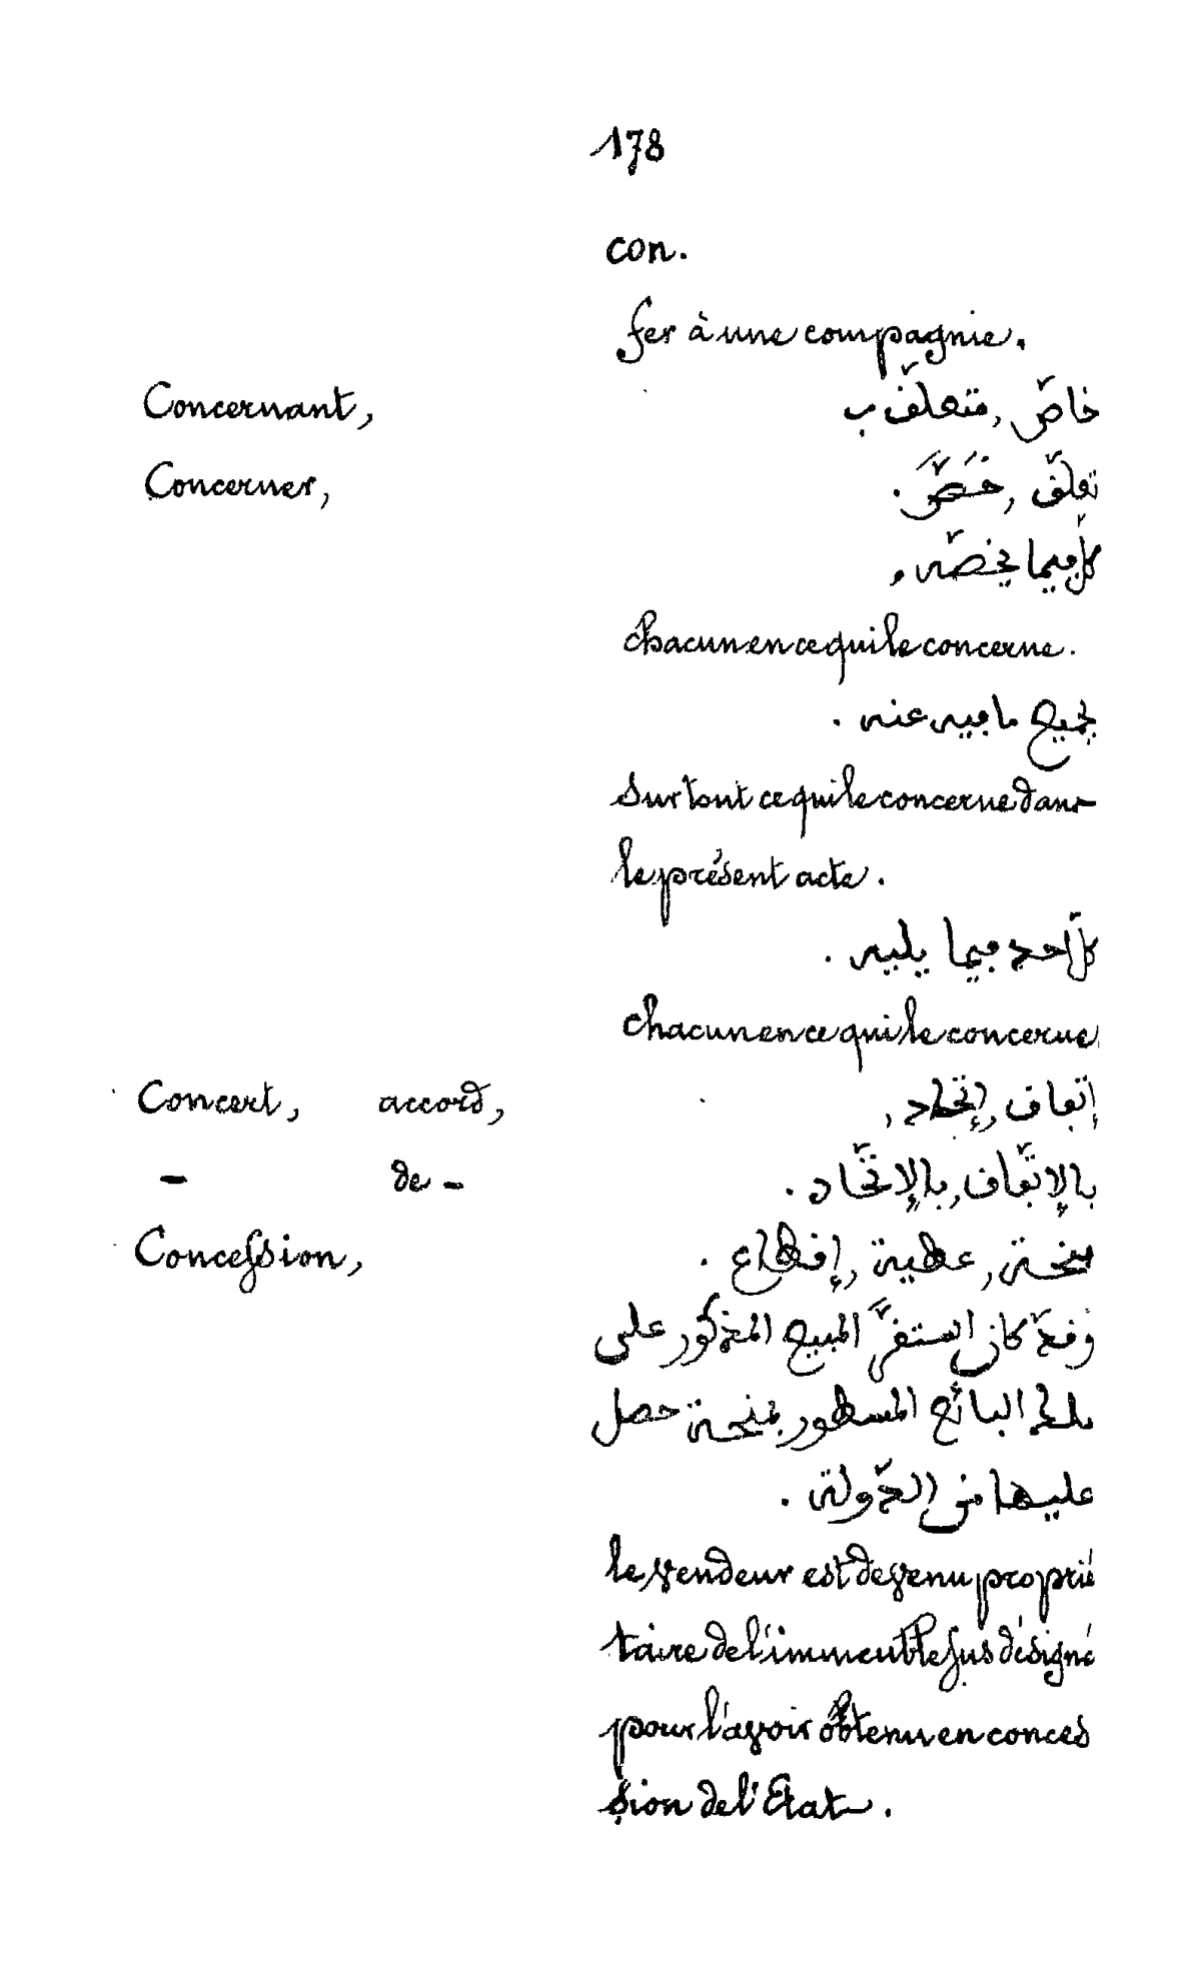 178
con.
fer à une compagnie.
Concernant, خاصّ, متعلّق ب
Concerner, تعلّق, خَصَّ.
كلّ فيما يخصّه,
chacun en ce qui le concerne.
بجميع ما فيه عنه.
sur tout ce qui le concerne dans
le présent acte.
كلّ احد فيما يليه.
chacun en ce qui le concerne.
Concert, accord, إتّفاق, إتّحاد,
- de - بالإتّفاق, بالإتّحاد.
Concession, منحة, عطية, إقطاع.
وقد كان استقرّ المبيع المذكور على
ملك البائع المسطور بمنحة حصل
عليها من الدّولة.
le vendeur est devenu proprié
taire de l'immeuble sus désigné
pour l'avoir obtenu en conces
sion de l'Etat.